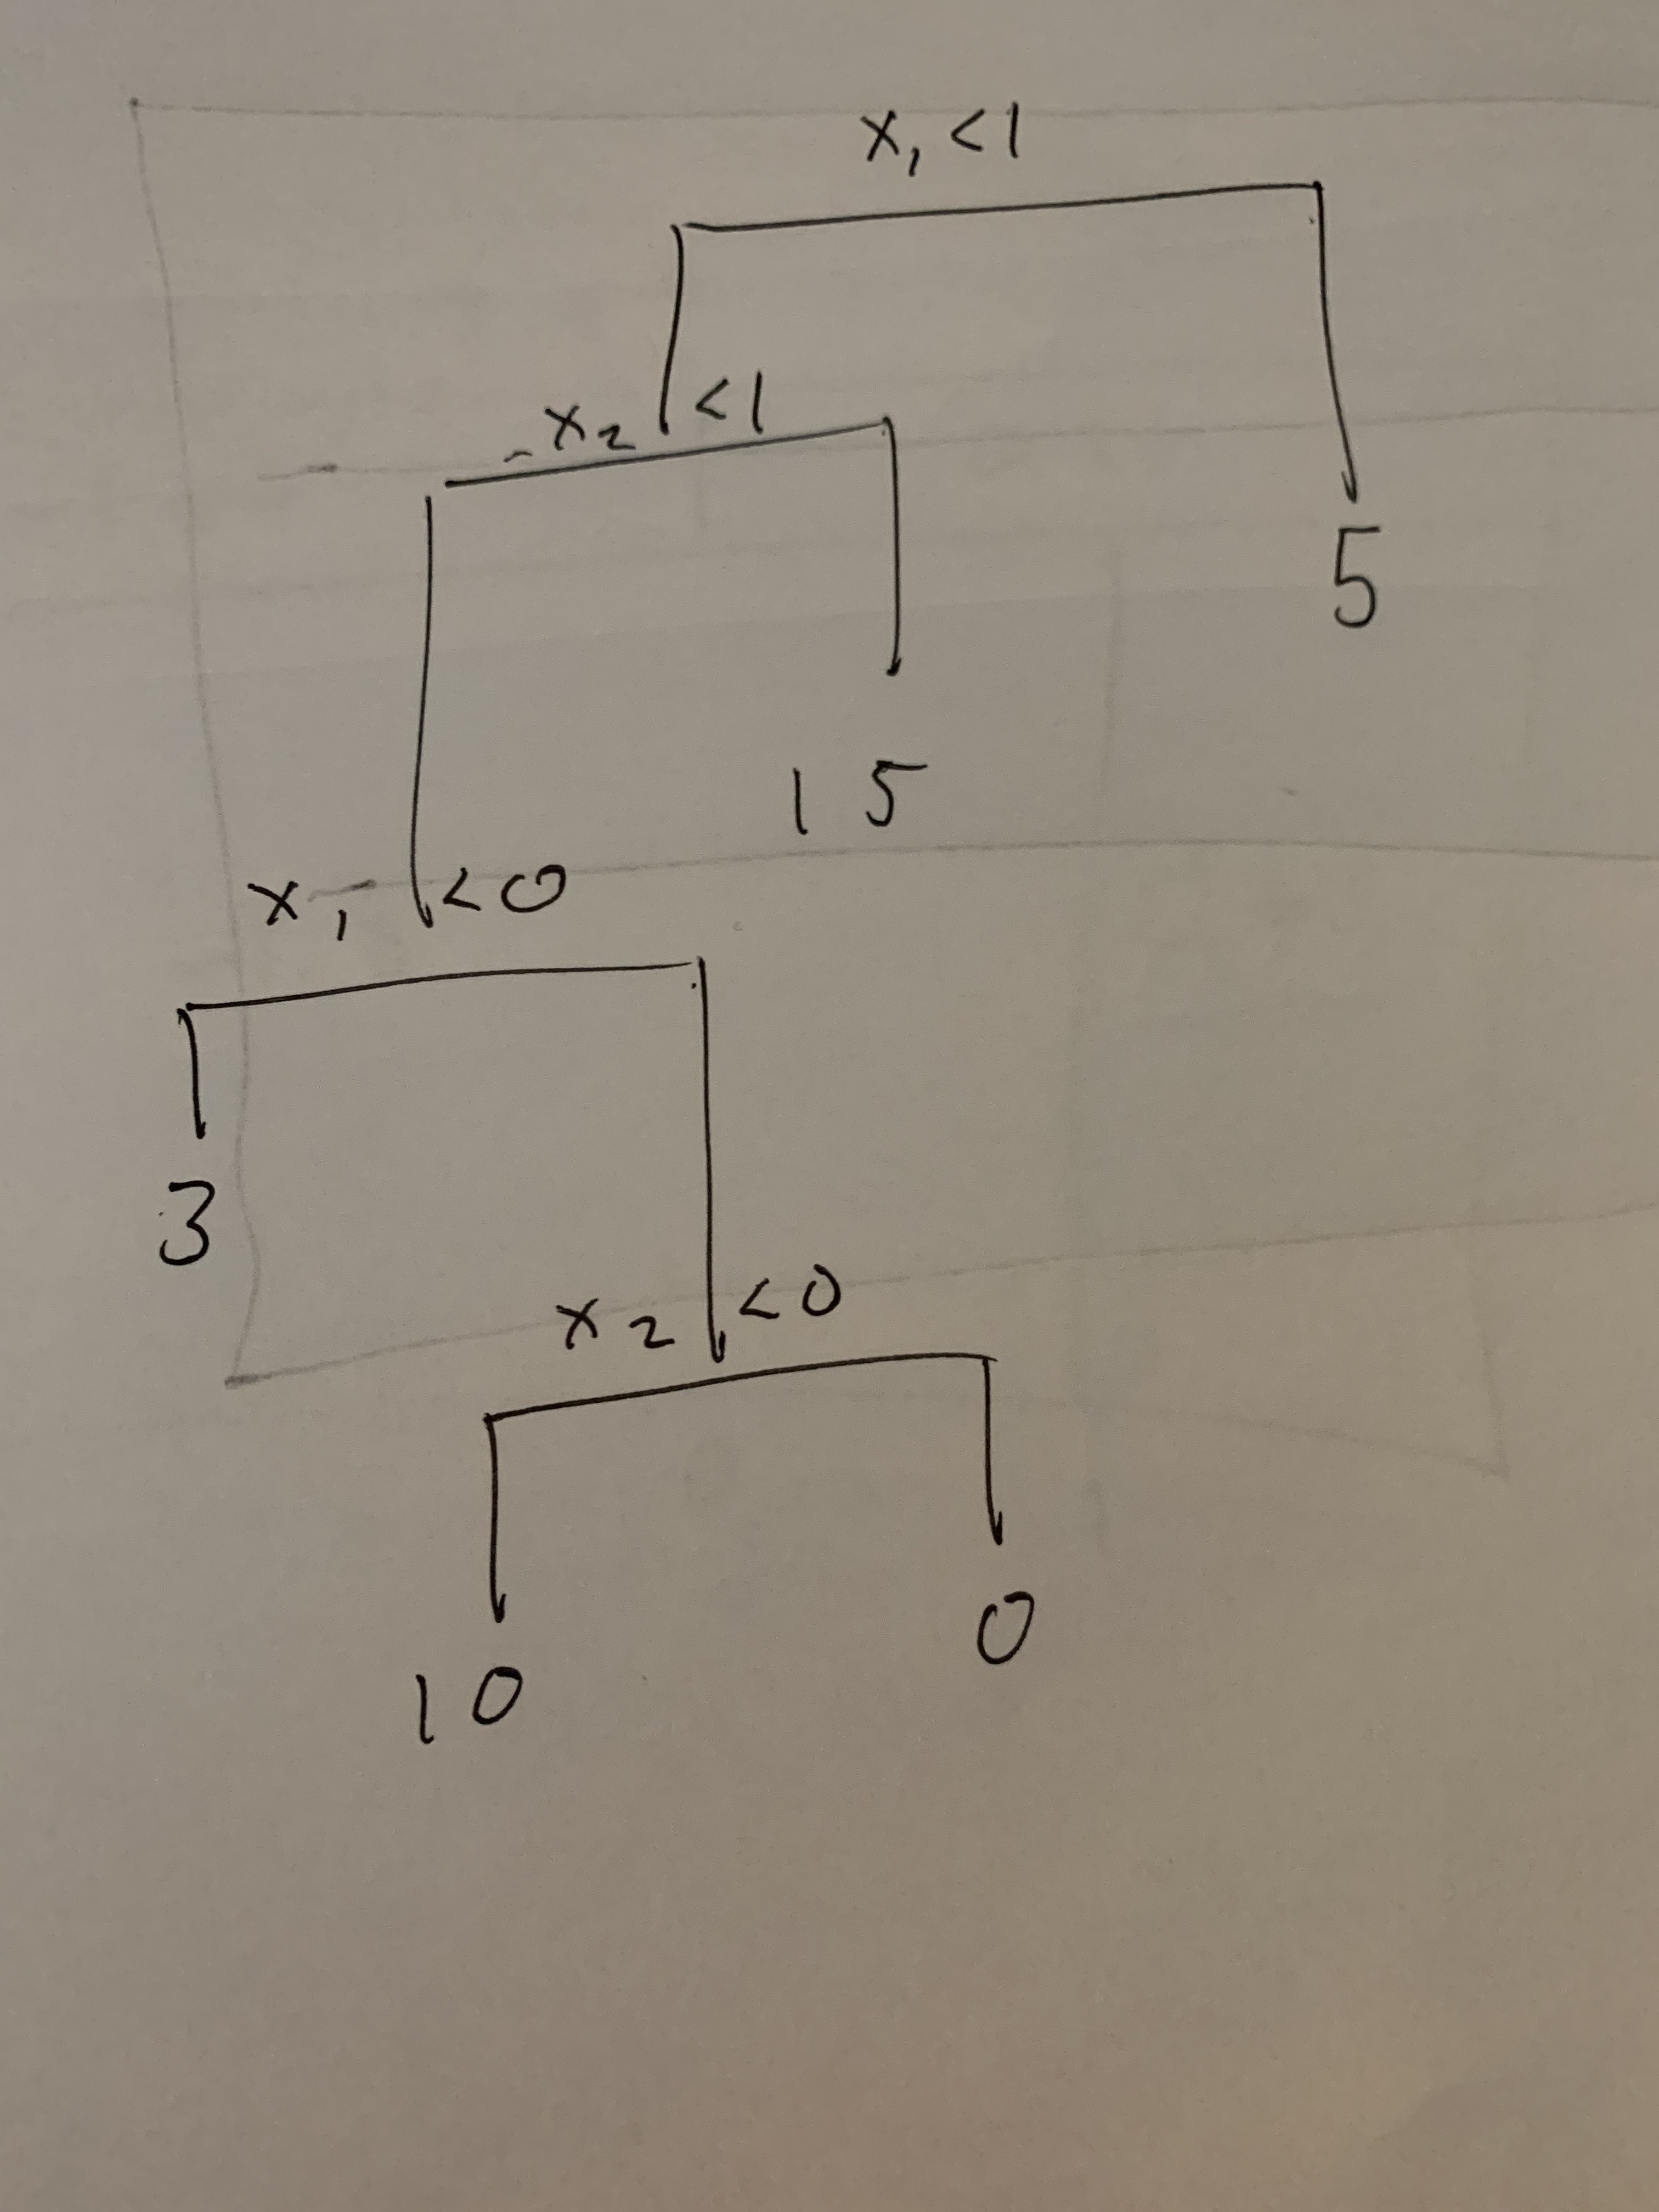 x₁ <1
x₂ <1
5
15
x₁ <0
3
x₂ <0
0
10